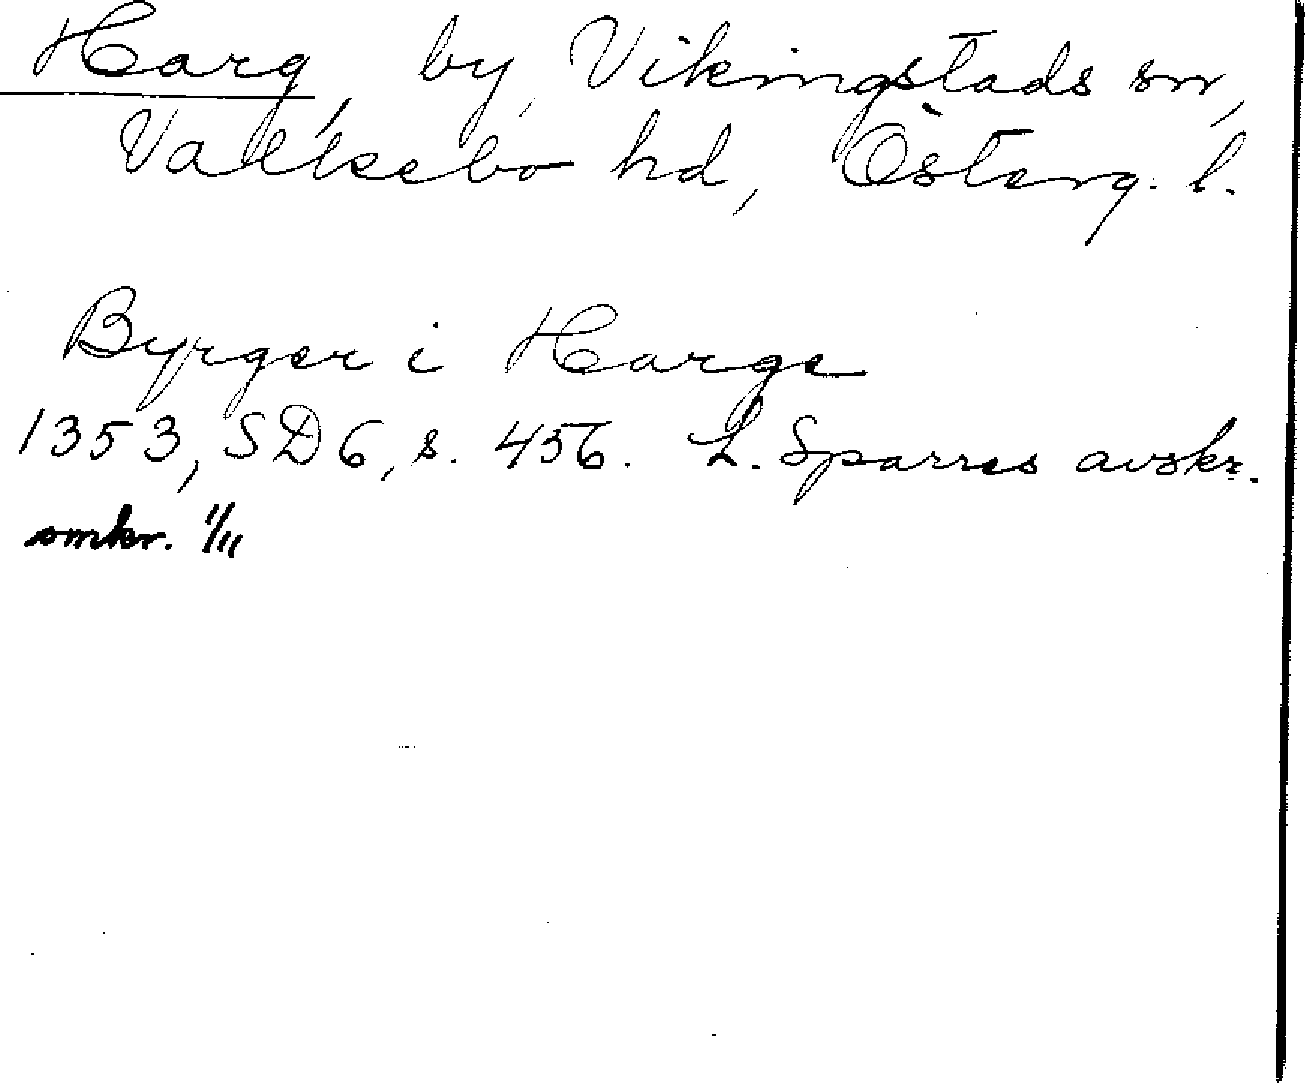 Harg, by, Vikingstads sn,
Valkebo hd, Österg. l.
Byrger i Harge
1353, SD 6, s. 456. L. Sparres avskr.
omkr. 1/11